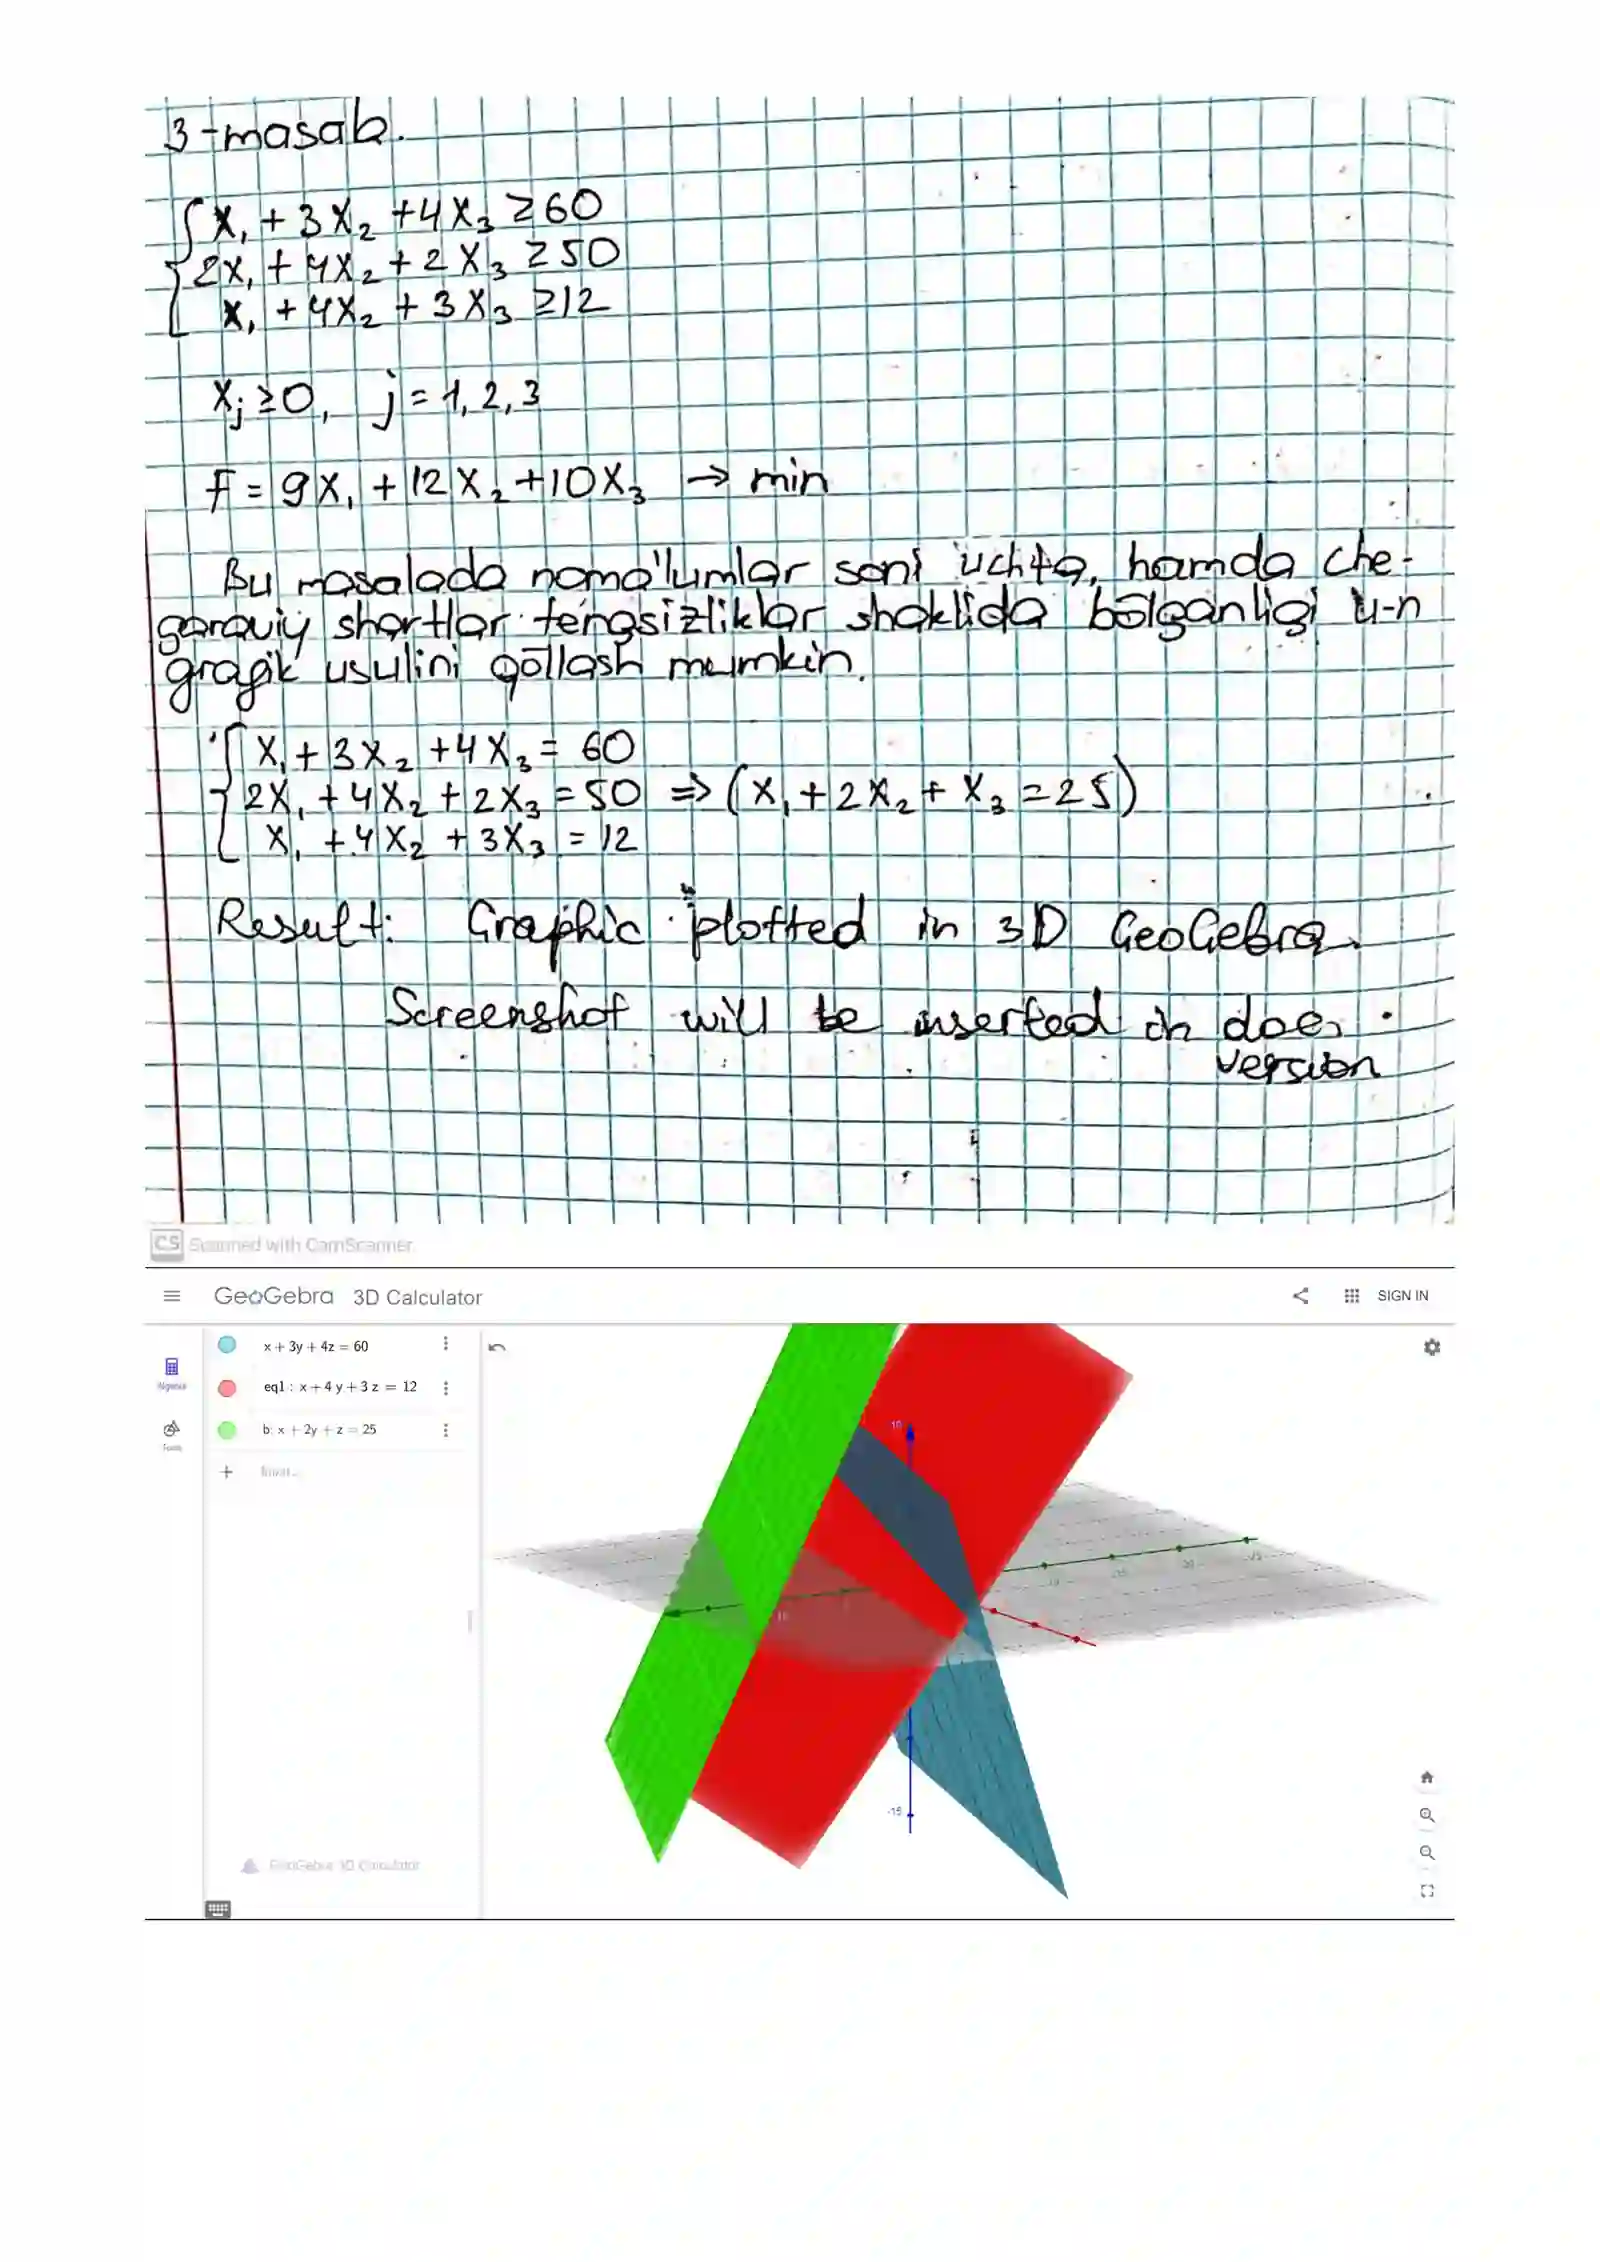 3-masala.
x₁ + 3x₂ + 4x₃ ≥ 60
2x₁ + 4x₂ + 2x₃ ≥ 50
x₁ + 4x₂ + 3x₃ ≥ 12
xj ≥ 0, j = 1, 2, 3
F = 9x₁ + 12x₂ + 10x₃ → min
Bu masalada noma'lumlar soni uchta, hamda che-
garaviy shartlar tengsizliklar shaklida bōlganligi u-n
grafik usulini qōllash mumkin.
x₁ + 3x₂ + 4x₃ = 60
2x₁ + 4x₂ + 2x₃ = 50 => (x₁ + 2x₂ + x₃ = 25)
x₁ + 4x₂ + 3x₃ = 12
Result: Graphic plotted in 3D GeoGebra.
Screenshot will be inserted in doc.
version
CS Scanned with CamScanner
GeoGebra 3D Calculator SIGN IN
x + 3y + 4z = 60
eq1 : x + 4 y + 3 z = 12
b: x + 2y + z = 25
+ Input...
Algebra
Tools
10
-15
GeoGebra 3D Calculator